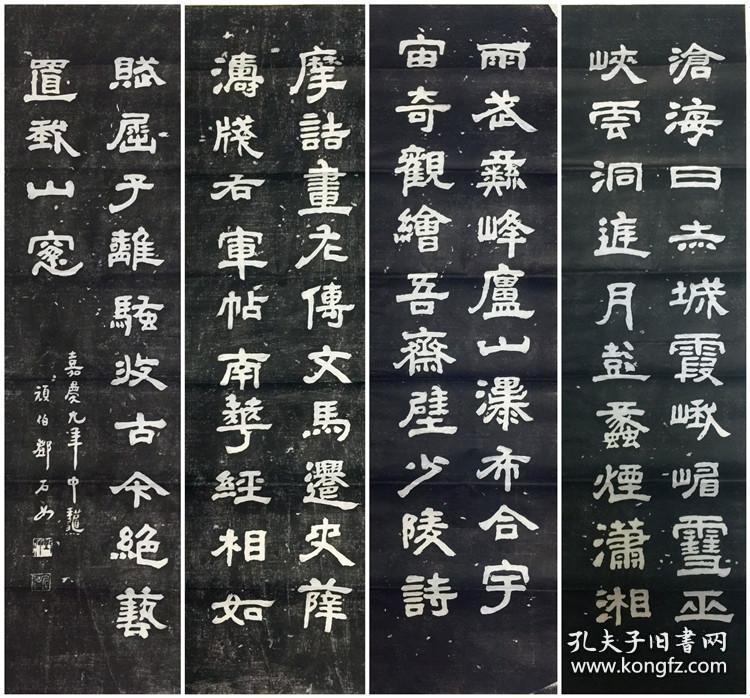 滄海日赤城霞峨嵋雪巫
峽雲洞庭月彭蠡煙瀟湘
雨武彝峰廬山瀑布合宇
宙奇觀繪吾齋壁少陵詩
摩詰畫左傳文馬遷史薛
濤牋右軍帖南華經相如
賦屈子離騷收古今絕藝
置我山窓
嘉慶九年中龝
頑伯鄧石如
孔夫子旧書网
www.kongfz.com